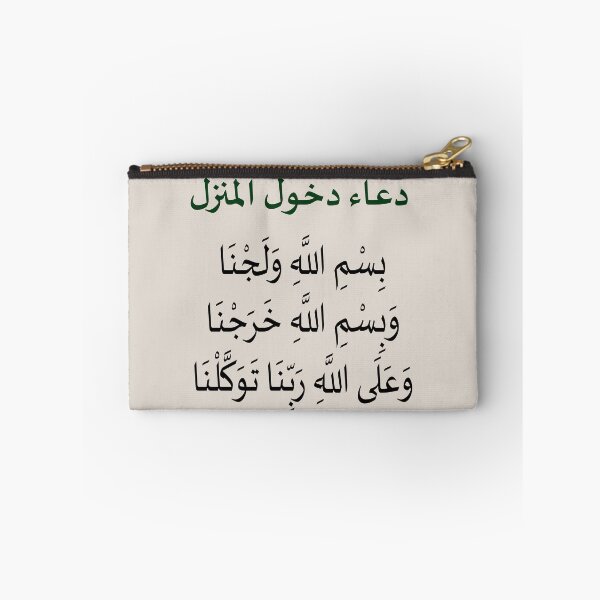 دعاء دخول المنزل
بِسْمِ اللَّهِ وَلَجْنَا
وَبِسْمِ اللَّهِ خَرَجْنَا
وَعَلَى اللَّهِ رَبِّنَا تَوَكَّلْنَا